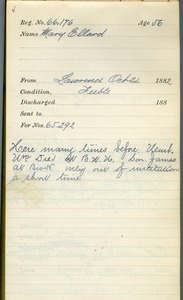 Reg. No. 66,176 Age 56
Name Mary Ellard
From Lawrence Oct 21 1882
Condition, Feeble
Discharged 188
Sent to
For Nos. 65.292
Here many times before. Unmb.
Was Died at B.W.Ho Son James
at Bwok only out of institution
a short time